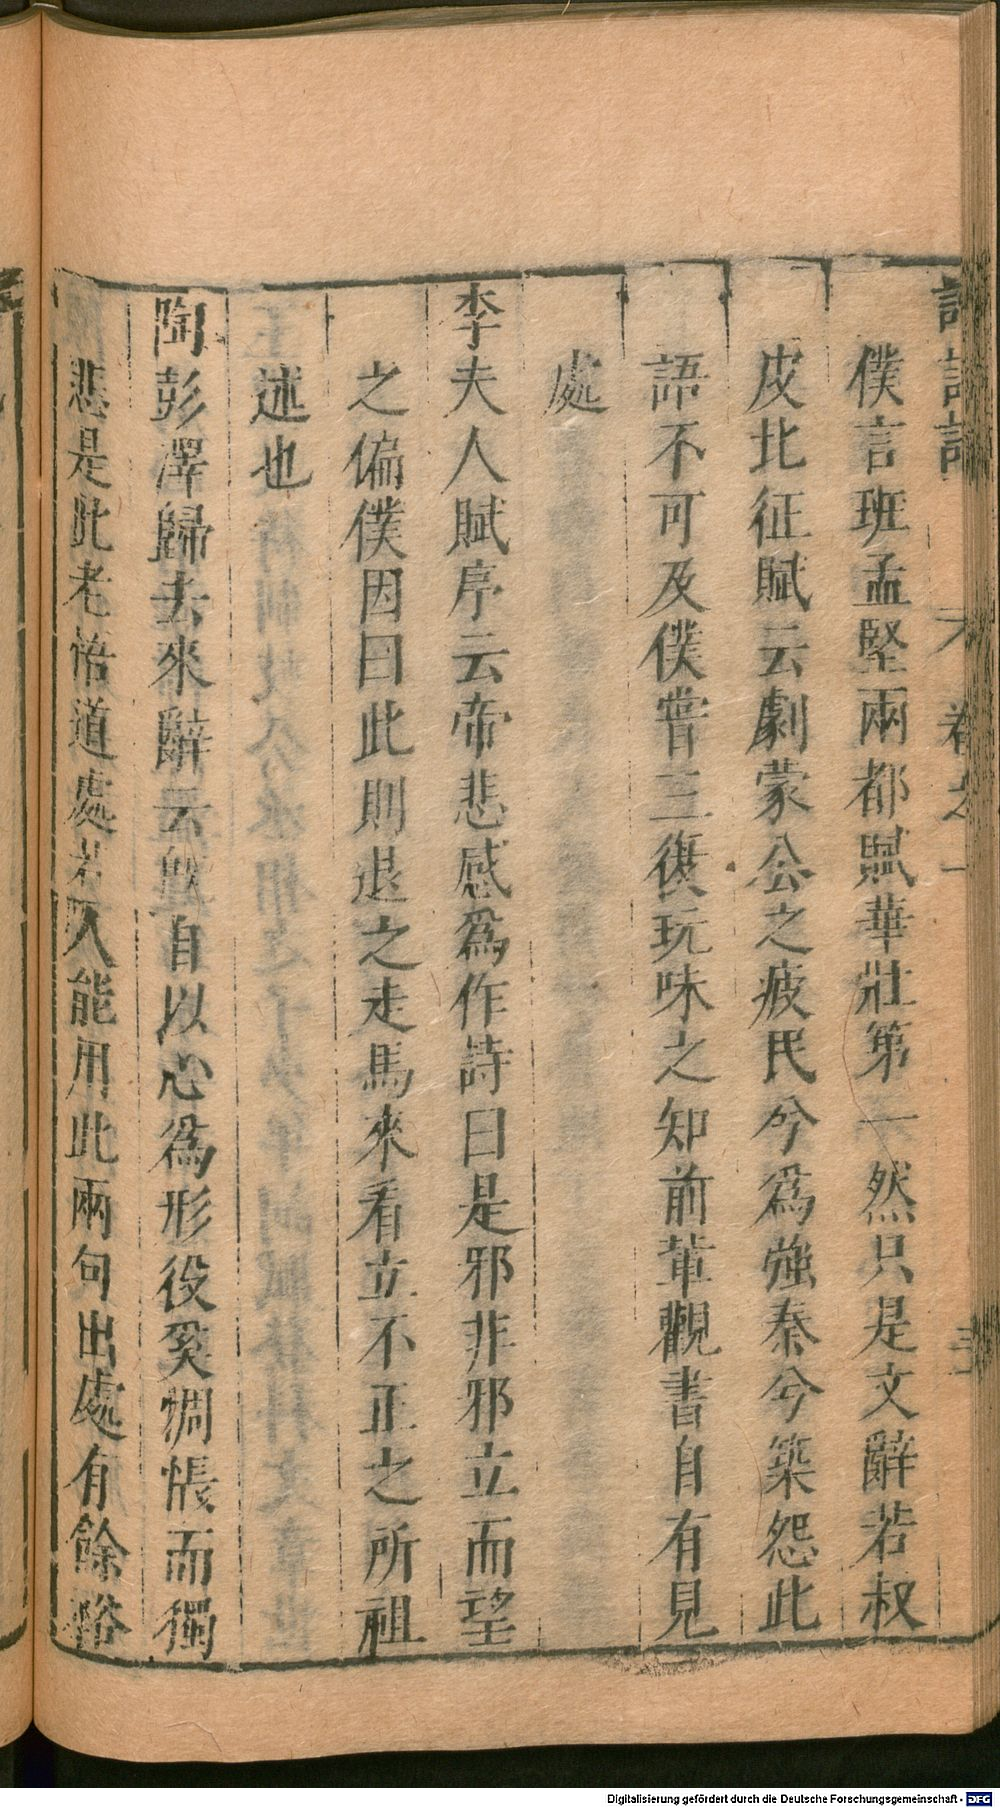 僕言班孟堅兩都賦華壯第一然只是文辭若叔
皮北征賦云劇蒙公之疲民兮爲強秦兮築怨此
語不可及僕嘗三復玩味之知前輩觀書自有見
處
李夫人賦序云帝悲感爲作詩曰是邪非邪立而望
之偏僕因曰此則退之走馬來看立不正之所祖
述也
陶彭澤歸去來辭云旣自以心爲形役奚惆悵而獨
悲是此老悟道處若人能用此兩句出處有餘裕
Digitalisierung gefördert durch die Deutsche Forschungsgemeinschaft - DFG